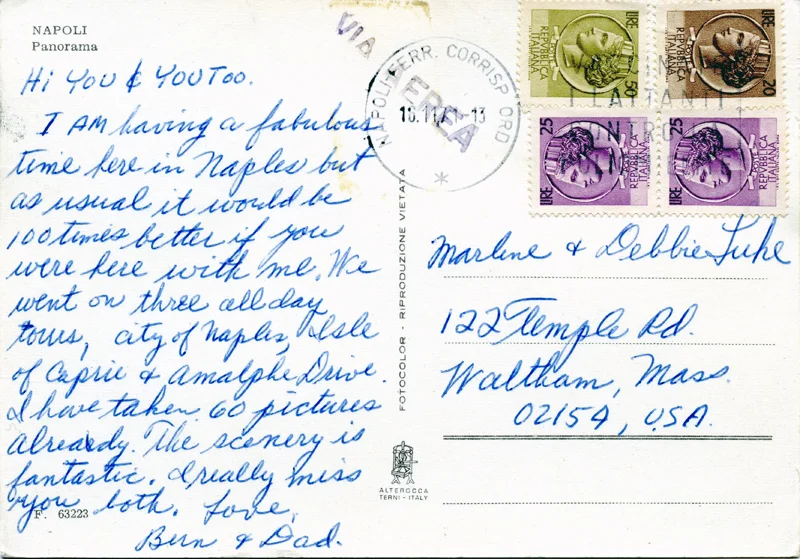 NAPOLI
Panorama
Hi You & YOU Too.
I AM having a fabulous
time here in Naples but
as usual it would be
100 times better if you
were here with me. We
went on three all day
tours, city of Naples, Isle
of Caprie & Amalphe Drive.
I have taken 60 pictures
already. The scenery is
fantastic. I really miss
you both. Love,
Bern & Dad.
F. 63223
VIA AEREA
NAPOLI FERR. CORRISP ORD
13
FOTOCOLOR - RIPRODUZIONE VIETATA
ALTEROCCA
TERNI - ITALY
LIRE REPVBBLICA ITALIANA
LIRE 20 REPVBBLICA ITALIANA
25 LIRE REPVBBLICA ITALIANA
25 LIRE REPVBBLICA ITALIANA
Marlene & Debbie
122 Temple Rd.
Waltham, Mass.
02154, USA.